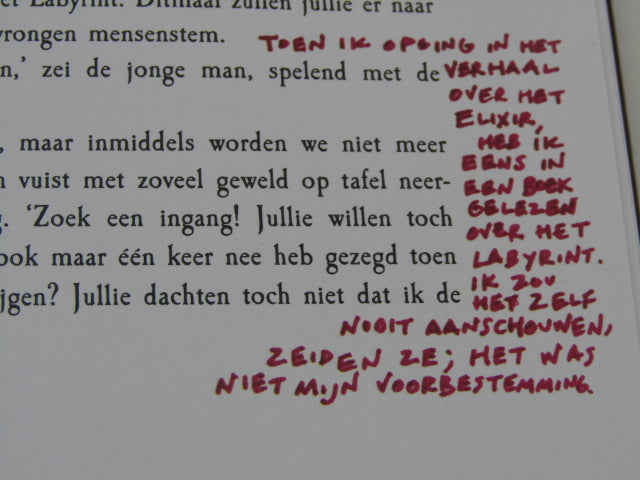 et Labyrint. Ditmaal zullen jullie er naar
vrongen mensenstem.
n,' zei de jonge man, spelend met de
, maar inmiddels worden we niet meer
n vuist met zoveel geweld op tafel neer-
g. 'Zoek een ingang! Jullie willen toch
ook maar één keer nee heb gezegd toen
ijgen? Jullie dachten toch niet dat ik de
TOEN IK OPGING IN HET
VERHAAL
OVER HET
ELIXIR,
HEB IK
EENS IN
EEN BOEK
GELEZEN
OVER HET
LABYRINT.
IK ZOU
HET ZELF
NOOIT AANSCHOUWEN,
ZEIDEN ZE; HET WAS
NIET MIJN VOORBESTEMMING.